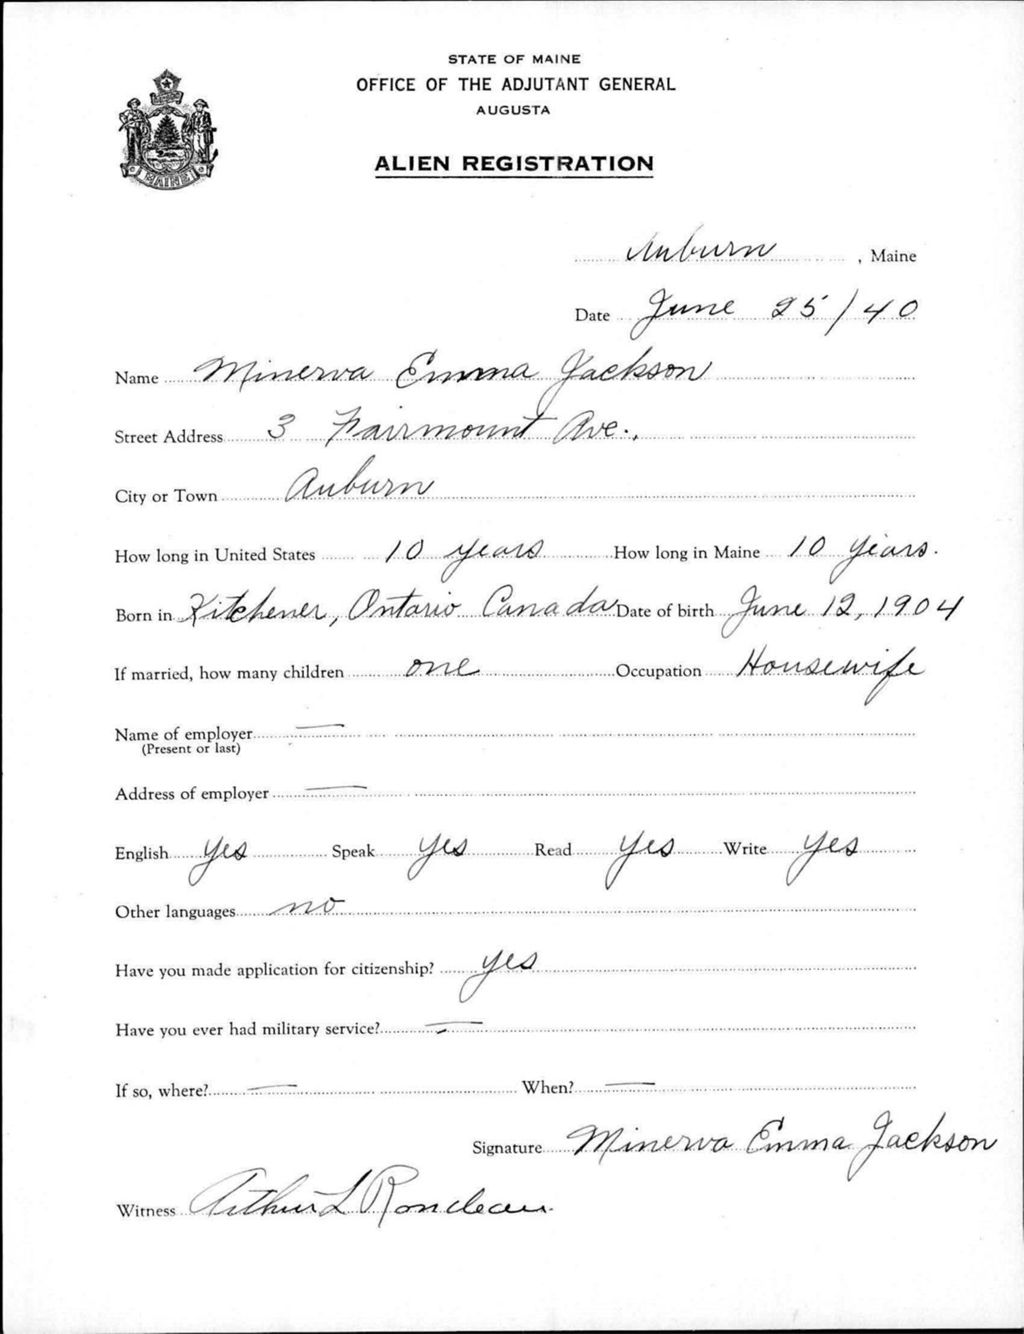 STATE OF MAINE
OFFICE OF THE ADJUTANT GENERAL
AUGUSTA
ALIEN REGISTRATION
MAINE
Auburn, Maine
Date June 25/40
Name Minerva Emma Jackson
Street Address 3 Fairmount Ave.,
City or Town Auburn
How long in United States 10 years How long in Maine 10 years.
Born in Kitchener, Ontario Canada Date of birth June 12, 1904
If married, how many children one Occupation Housewife
Name of employer —
(Present or last)
Address of employer —
English yes Speak yes Read yes Write yes
Other languages no
Have you made application for citizenship? yes
Have you ever had military service? —
If so, where? — When? —
Signature Minerva Emma Jackson
Witness Arthur L Rondeau